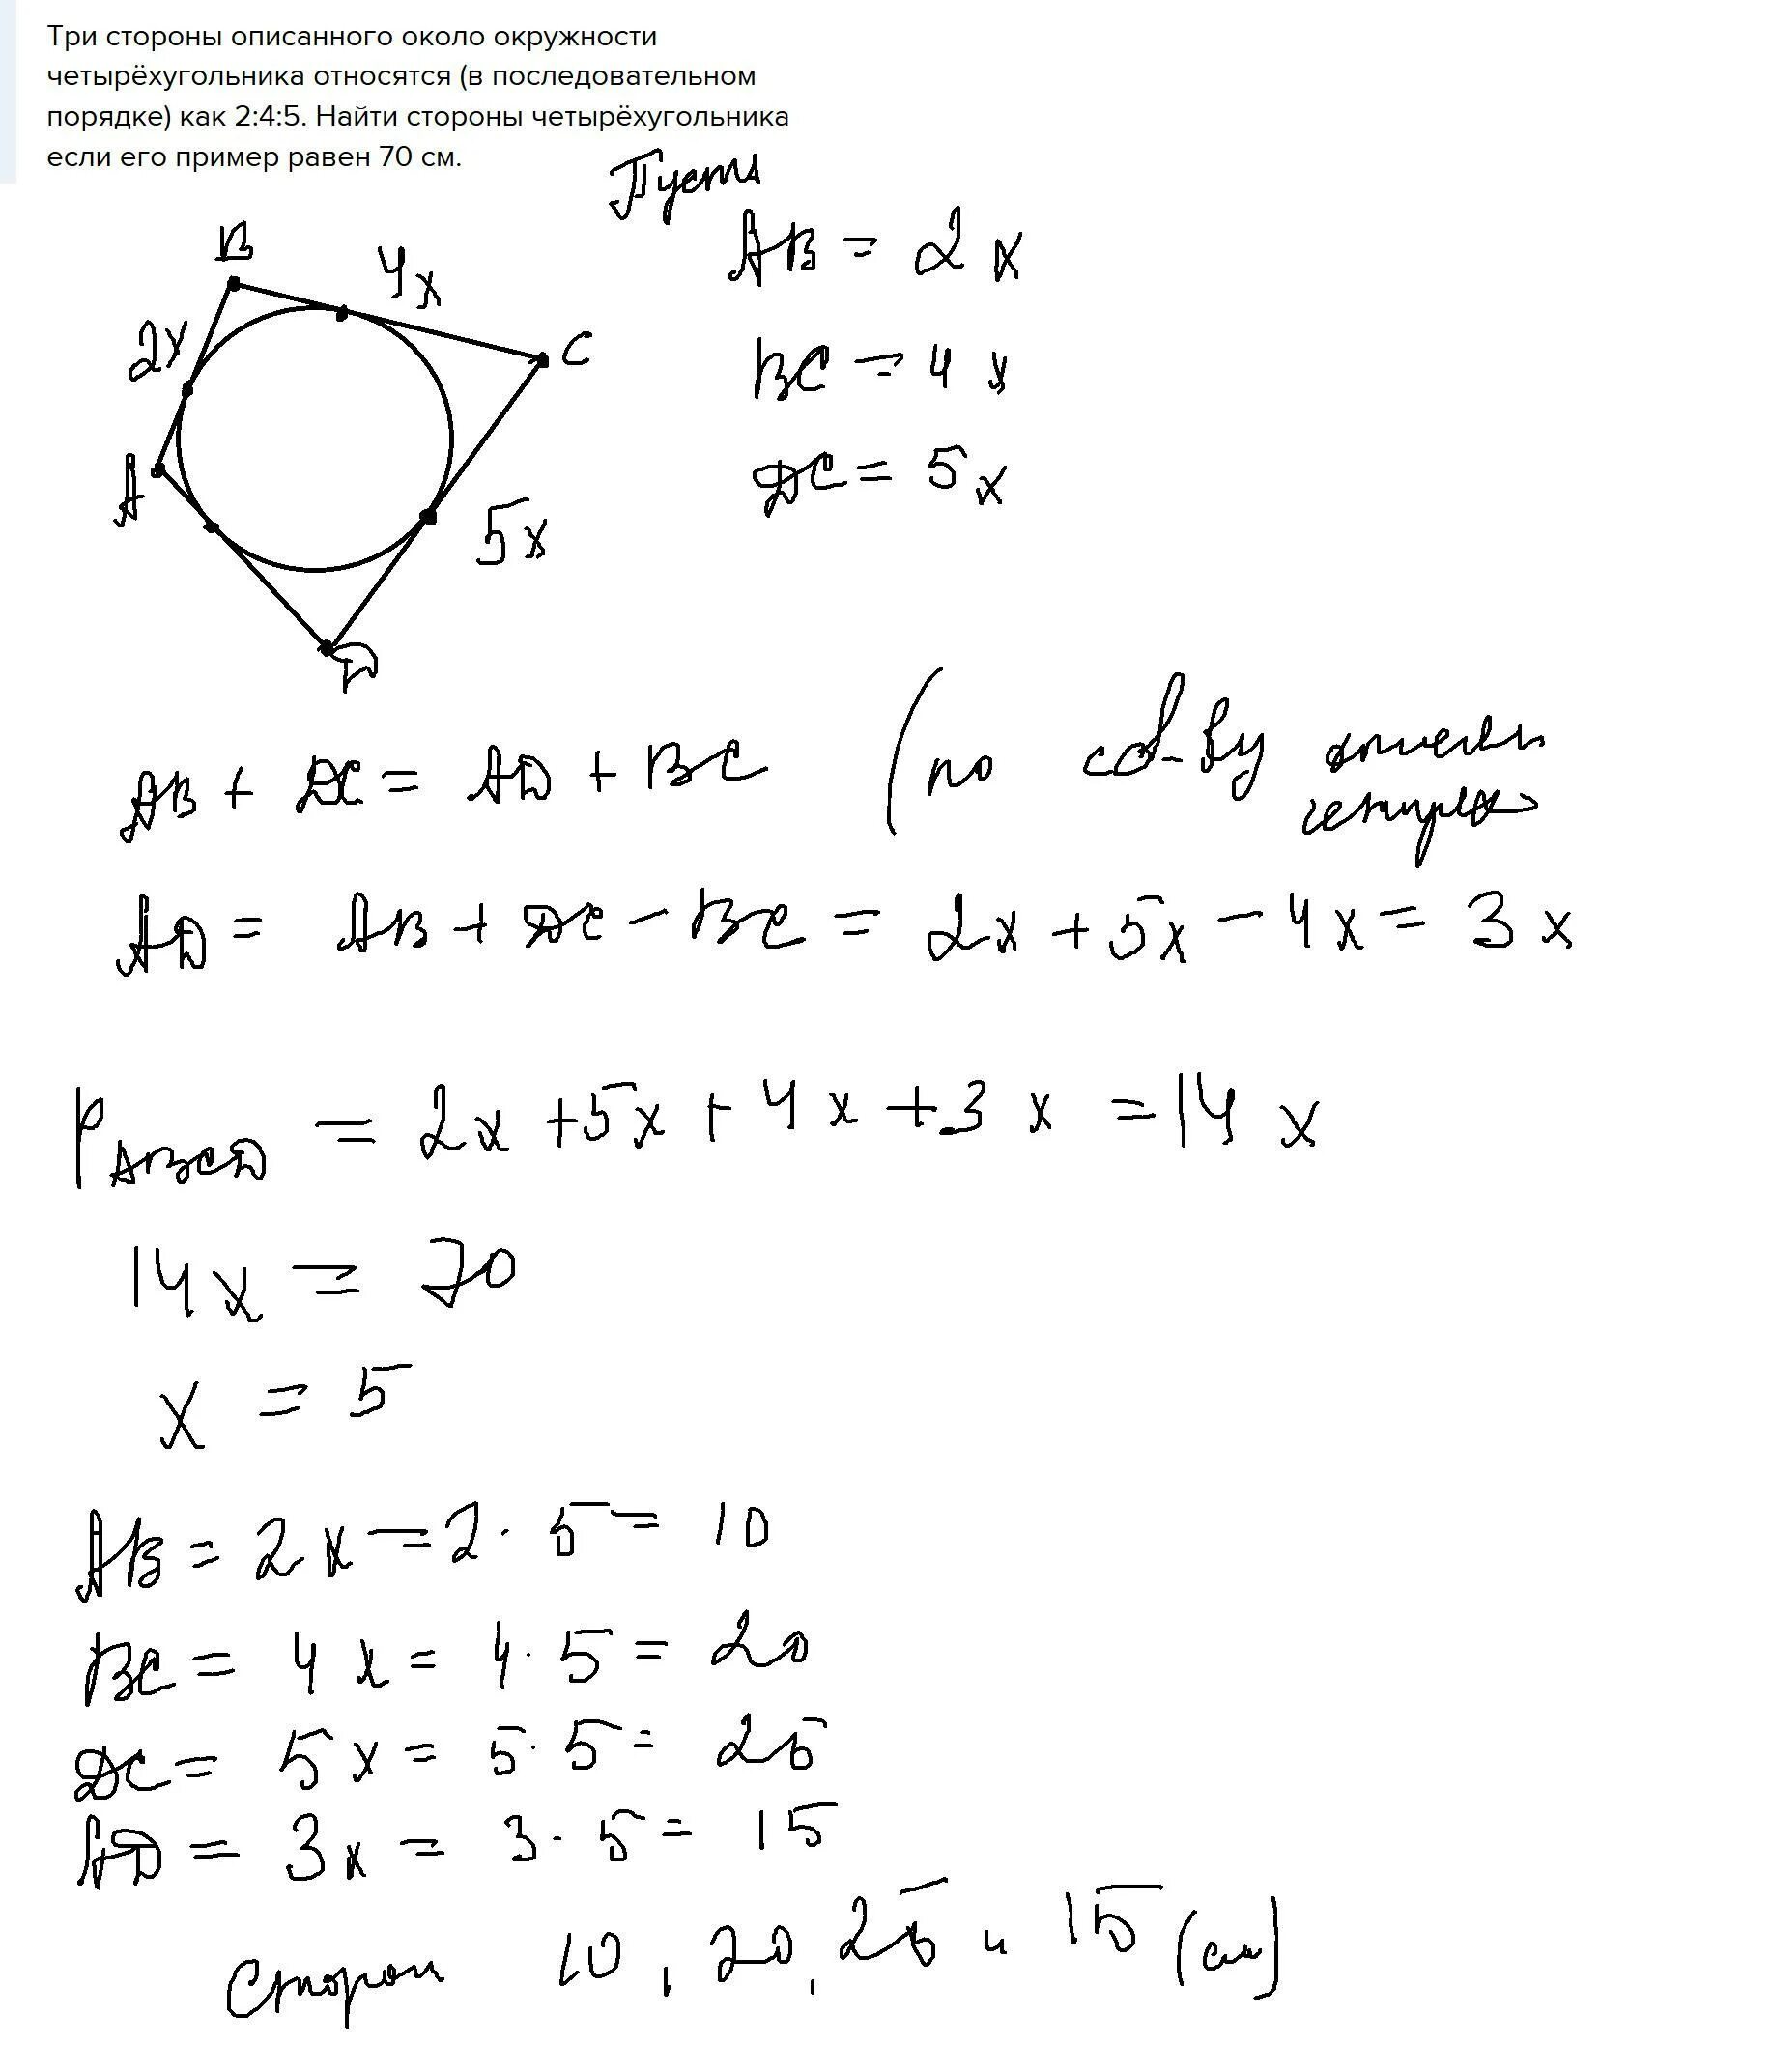 Три стороны описанного около окружности
четырёхугольника относятся (в последовательном
порядке) как 2:4:5. Найти стороны четырёхугольника
если его пример равен 70 см.
Пусть
AB = 2x
BC = 4x
DC = 5x
B
4x
2x
C
A
5x
D
AB + DC = AD + BC (по св-ву
AD = AB + DC - BC = 2x + 5x - 4x = 3x
PABCD = 2x + 5x + 4x + 3x = 14x
14x = 70
x = 5
AB = 2x = 2 · 5 = 10
BC = 4x = 4 · 5 = 20
DC = 5x = 5 · 5 = 25
AD = 3x = 3 · 5 = 15
10, 20, 25 и 15 (см)